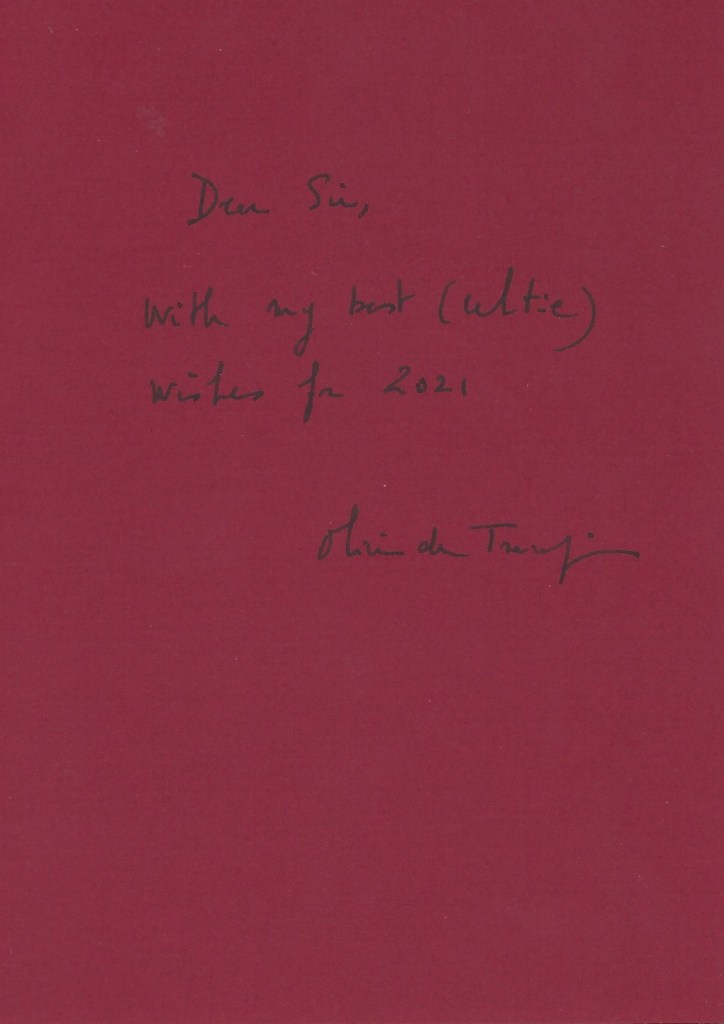 Dear Sir,
With my best (celtic)
Wishes for 2021
Olivier de